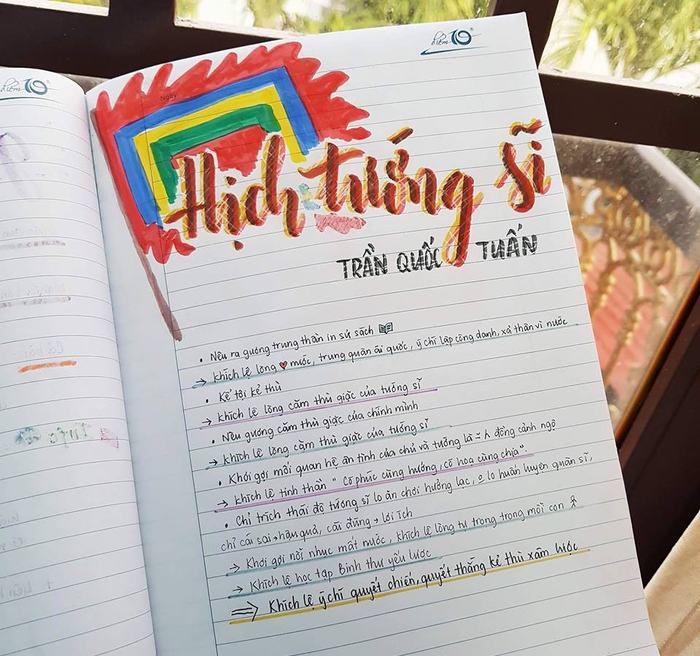 điểm 10
điểm 10
Ngày
Hịch tướng sĩ
TRẦN QUỐC TUẤN
• Nêu ra gương trung thần in sử sách
→ khích lệ lòng ♥ nước, trung quân ái quốc, ý chí lập công danh, xả thân vì nước
• Kể tội kẻ thù
→ khích lệ lòng căm thù giặc của tướng sĩ
• Nêu gương căm thù giặc của chính mình
→ khích lệ lòng căm thù giặc của tướng sĩ
• Khơi gợi mối quan hệ ân tình của chủ và tướng là đồng cảnh ngộ
→ khích lệ tinh thần "có phúc cùng hưởng, có hoạ cùng chịu".
• Chỉ trích thái độ tướng sĩ lo ăn chơi hưởng lạc, o lo huấn luyện quân sĩ,
chỉ cái sai → hậu quả, cái đúng → lợi ích
→ Khơi gợi nỗi nhục mất nước, khích lệ lòng tự trọng trong mỗi con
→ Khích lệ học tập Binh thư yếu lược
⇒ Khích lệ ý chí quyết chiến, quyết thắng kẻ thù xâm lược